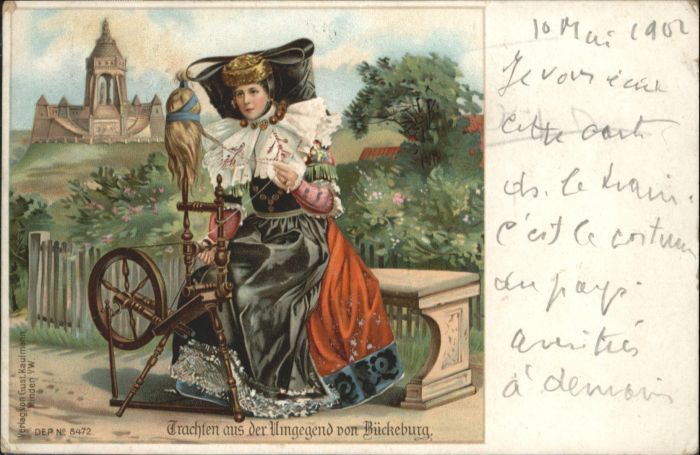 10 Mai 1902
Je vous écris
cette carte
ds. le train.
c'est le costume
du pays.
amitiés
à demain
Verlag von Gust. Kaufmann
Minden i/W
DEP No 8472
Trachten aus der Umgegend von Bückeburg.